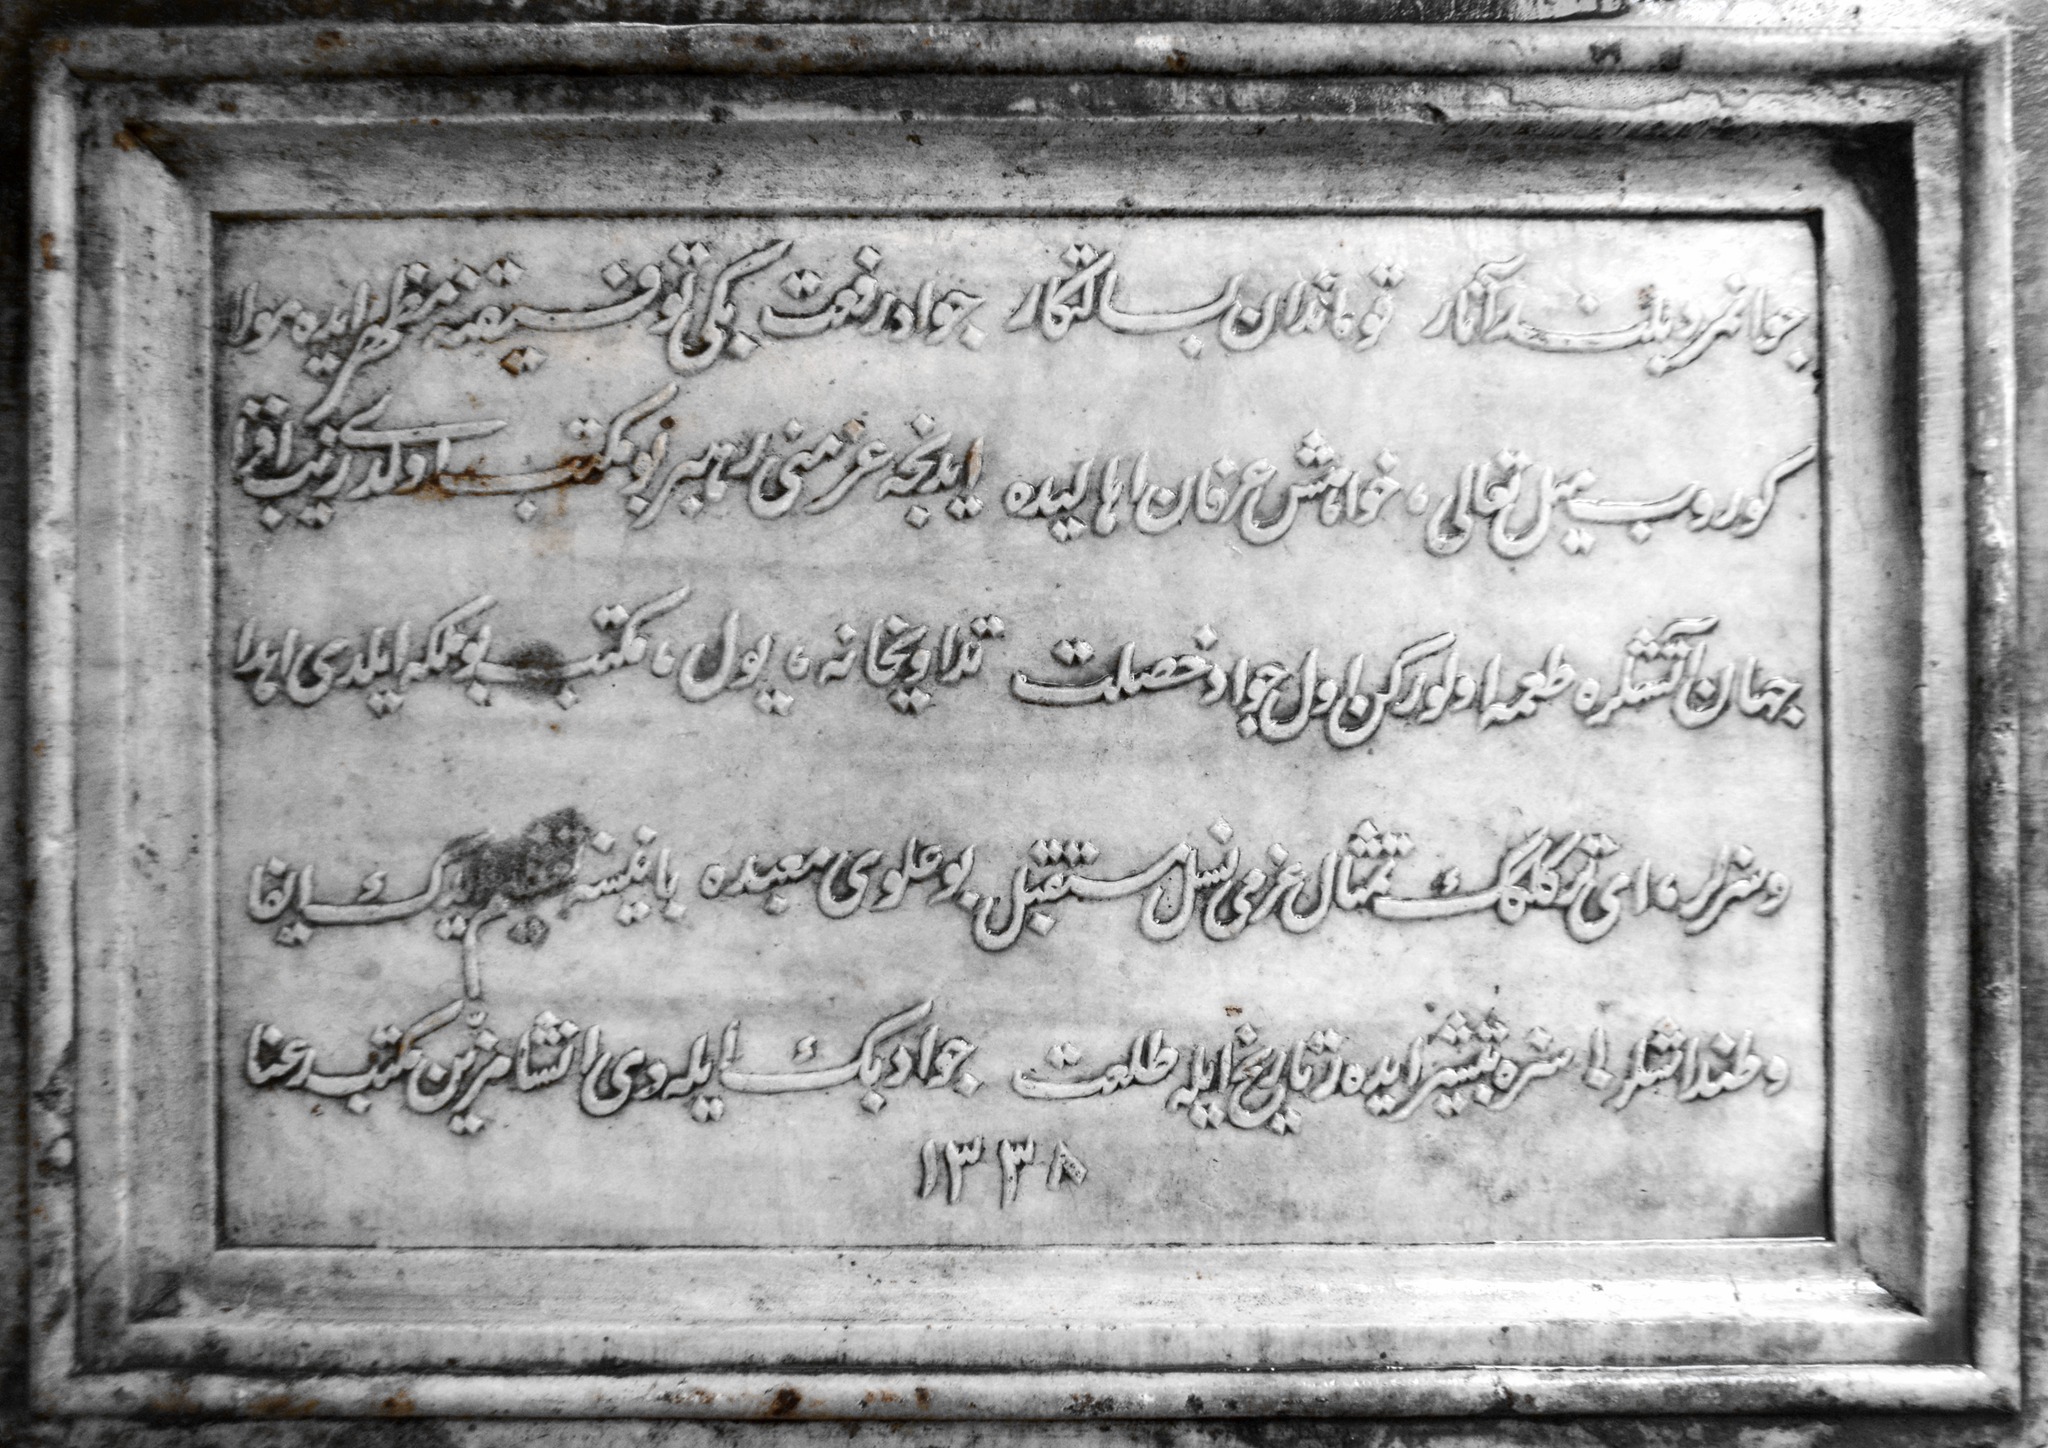 جوانمرد بلند آثار قوماندان بسالتكار جواد رفعت بكی توفيقينه مظهر ايده مولا
كوروب ميل تعالی، خواهش عرفان اهاليده ايدنجه عزمنی رهبر بو مكتب اولدی زيب افزا
جهان آتشلره طعمه اولوركن اول جواد خصلت تداويخانه، يول، مكتب بو ملكه ايلدی اهدا
وسزلر، ای تركلكك تمثال عزمی نسل مستقبل بو علوی معبده ايفا
وطنداشلر! سزه تبشير ايده ر تاريخ ايله طلعت جواد بك ايله دی انشا مزيّن مكتب رعنا
١٣٣٨